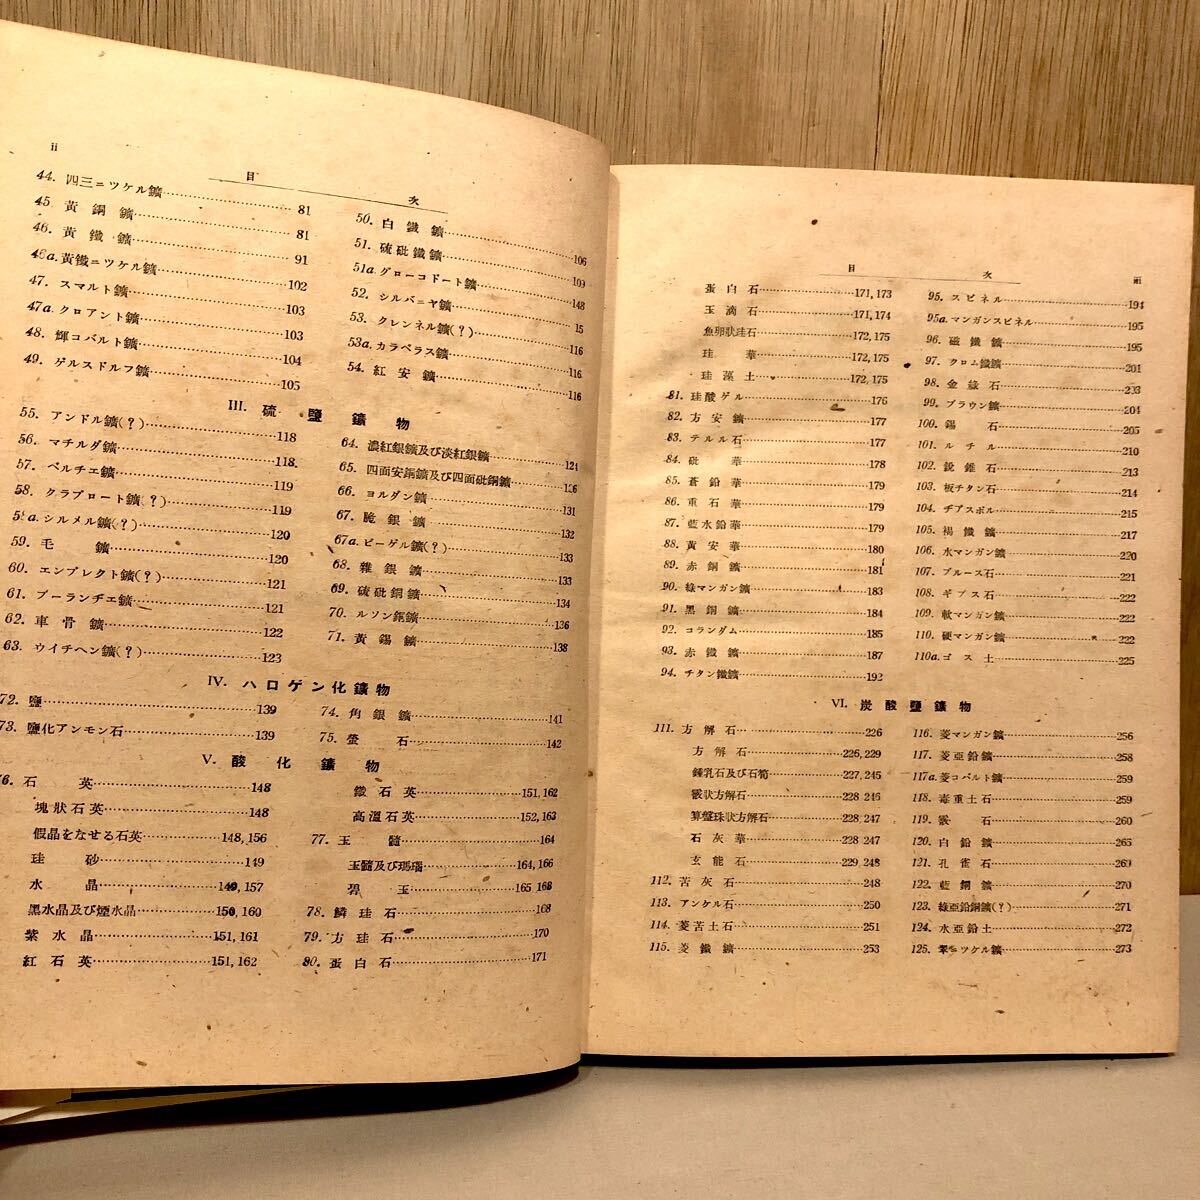 ii
目 次
44. 四三ニツケル鑛 81
45. 黃銅鑛 81
46. 黃鐵鑛 91
46a. 黃鐵ニツケル鑛 102
47. スマルト鑛 103
47a. クロアント鑛 103
48. 輝コバルト鑛 104
49. ゲルスドルフ鑛 105
50. 白鐵鑛 106
51. 硫砒鐵鑛 109
51a. グローコドート鑛 148
52. シルバニヤ鑛 15
53. クレンネル鑛(?) 116
53a. カラベラス鑛 116
54. 紅安鑛 116
III. 硫鹽鑛物
55. アンドル鑛(?) 118
56. マチルダ鑛 118
57. ベルチエ鑛 119
58. クラプロート鑛(?) 119
58a. シルメル鑛(?) 120
59. 毛鑛 120
60. エンプレクト鑛(?) 121
61. ブーランチエ鑛 121
62. 車骨鑛 122
63. ウイチヘン鑛(?) 123
64. 濃紅銀鑛及び淡紅銀鑛 124
65. 四面安銅鑛及び四面砒銅鑛 126
66. ヨルダン鑛 131
67. 脆銀鑛 132
67a. ビーゲル鑛(?) 133
68. 雜銀鑛 133
69. 硫砒銅鑛 134
70. ルソン銅鑛 136
71. 黃錫鑛 138
IV. ハロゲン化鑛物
72. 鹽 139
73. 鹽化アンモン石 139
74. 角銀鑛 141
75. 螢石 142
V. 酸化鑛物
76. 石英 148
塊狀石英 148
假晶をなせる石英 148, 156
珪砂 149
水晶 149, 157
黑水晶及び煙水晶 150, 160
紫水晶 151, 161
紅石英 151, 162
鐵石英 151, 162
高溫石英 152, 163
77. 玉髓 164
玉髓及び瑪瑙 164, 166
碧玉 165 168
78. 鱗珪石 168
79. 方珪石 170
80. 蛋白石 171
目 次
iii
蛋白石 171, 173
玉滴石 171, 174
魚卵狀珪石 172, 175
珪華 172, 175
珪藻土 172, 175
81. 珪酸ゲル 176
82. 方安鑛 177
83. テルル石 177
84. 砒華 178
85. 蒼鉛華 179
86. 重石華 179
87. 藍水鉛華 179
88. 黃安華 180
89. 赤銅鑛 181
90. 綠マンガン鑛 183
91. 黑銅鑛 184
92. コランダム 185
93. 赤鐵鑛 187
94. チタン鐵鑛 192
95. スピネル 194
95a. マンガンスピネル 195
96. 磁鐵鑛 195
97. クロム鐵鑛 201
98. 金綠石 203
99. ブラウン鑛 204
100. 錫石 205
101. ルチル 210
102. 銳錐石 213
103. 板チタン石 214
104. ヂアスポル 215
105. 褐鐵鑛 217
106. 水マンガン鑛 220
107. ブルース石 221
108. ギブス石 222
109. 軟マンガン鑛 222
110. 硬マンガン鑛 222
110a. ゴス土 225
VI. 炭酸鹽鑛物
111. 方解石 226
方解石 226, 229
鍾乳石及び石筍 227, 245
霰狀方解石 228 246
算盤珠狀方解石 228, 247
石灰華 228 247
玄能石 229, 248
112. 苦灰石 248
113. アンケル石 250
114. 菱苦土石 251
115. 菱鐵鑛 253
116. 菱マンガン鑛 256
117. 菱亞鉛鑛 258
117a. 菱コバルト鑛 259
118. 毒重土石 259
119. 霰石 260
120. 白鉛鑛 265
121. 孔雀石 269
122. 藍銅鑛 270
123. 綠亞鉛銅鑛(?) 271
124. 水亞鉛土 272
125. 翠ニツケル鑛 273